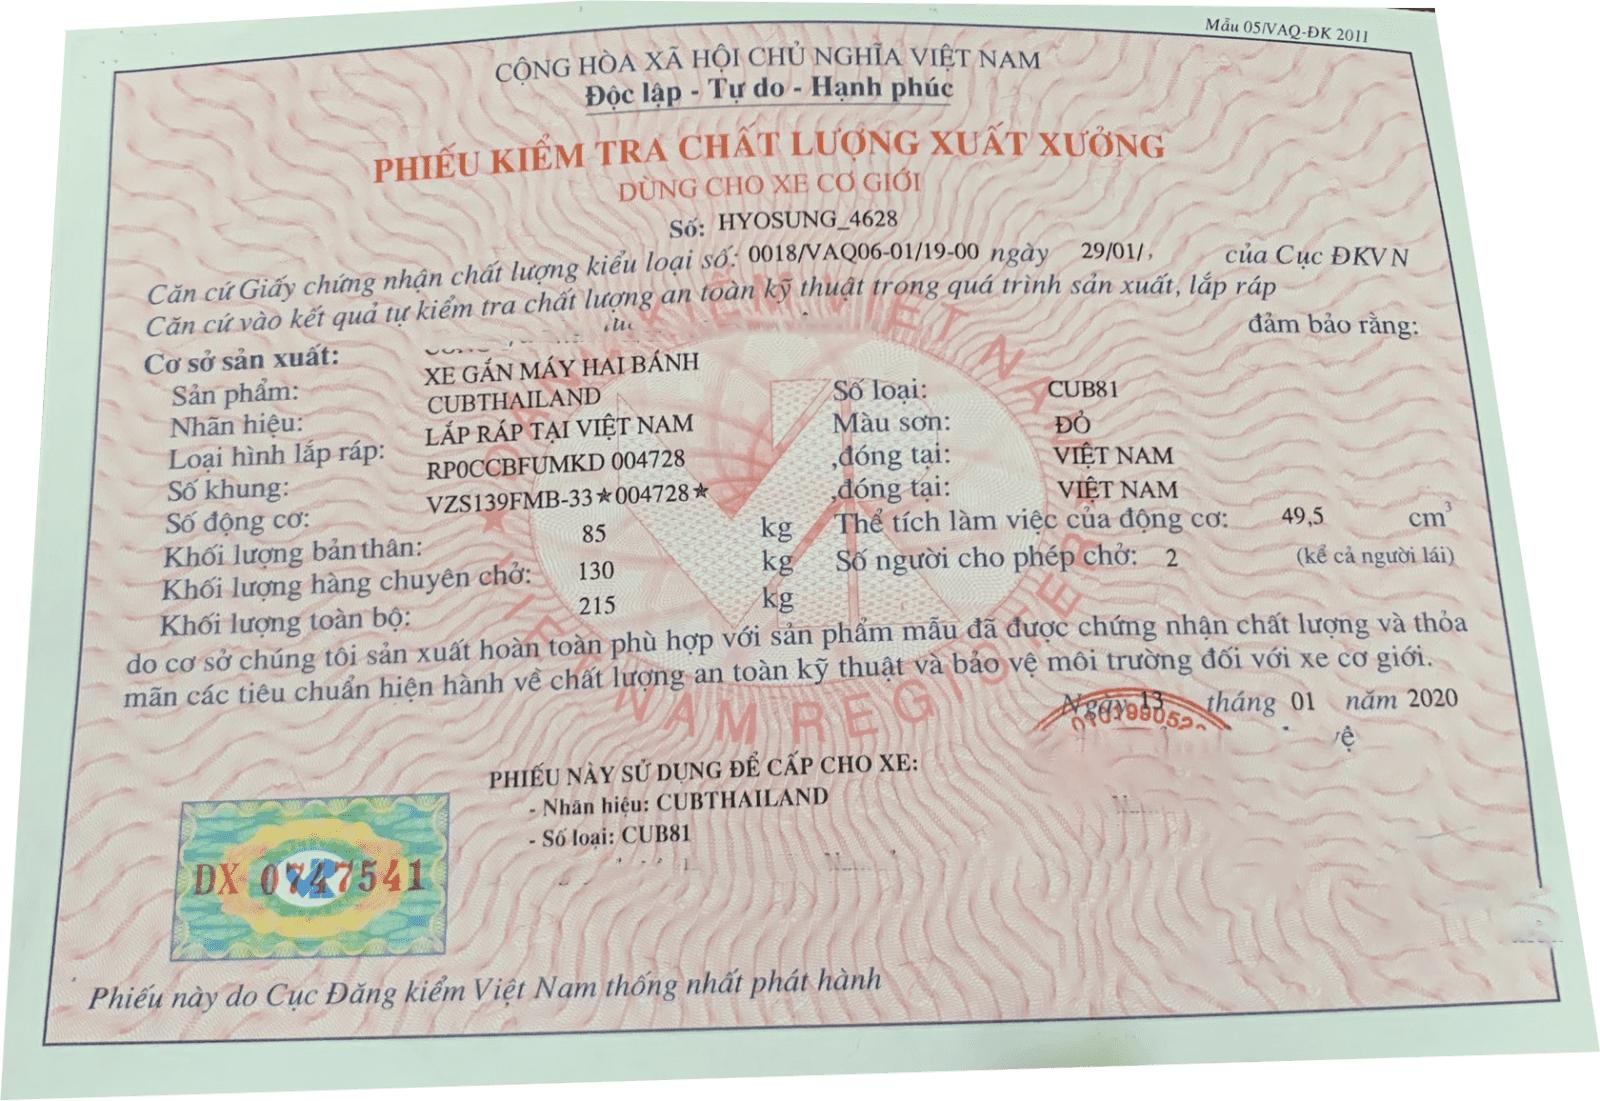 Mẫu 05/VAQ-ĐK 2011
CỘNG HÒA XÃ HỘI CHỦ NGHĨA VIỆT NAM
Độc lập - Tự do - Hạnh phúc
PHIẾU KIỂM TRA CHẤT LƯỢNG XUẤT XƯỞNG
DÙNG CHO XE CƠ GIỚI
Số: HYOSUNG_4628
Căn cứ Giấy chứng nhận chất lượng kiểu loại số: 0018/VAQ06-01/19-00 ngày 29/01/ của Cục ĐKVN
Căn cứ vào kết quả tự kiểm tra chất lượng an toàn kỹ thuật trong quá trình sản xuất, lắp ráp
Cơ sở sản xuất: đảm bảo rằng:
Sản phẩm: XE GẮN MÁY HAI BÁNH Số loại: CUB81
Nhãn hiệu: CUBTHAILAND Màu sơn: ĐỎ
Loại hình lắp ráp: LẮP RÁP TẠI VIỆT NAM
Số khung: RP0CCBFUMKD 004728 ,đóng tại: VIỆT NAM
Số động cơ: VZS139FMB-33★004728★ ,đóng tại: VIỆT NAM
Khối lượng bản thân: 85 kg Thể tích làm việc của động cơ: 49,5 cm³
Khối lượng hàng chuyên chở: 130 kg Số người cho phép chở: 2 (kể cả người lái)
Khối lượng toàn bộ: 215 kg
do cơ sở chúng tôi sản xuất hoàn toàn phù hợp với sản phẩm mẫu đã được chứng nhận chất lượng và thỏa
mãn các tiêu chuẩn hiện hành về chất lượng an toàn kỹ thuật và bảo vệ môi trường đối với xe cơ giới.
Ngày 13 tháng 01 năm 2020
PHIẾU NÀY SỬ DỤNG ĐỂ CẤP CHO XE:
- Nhãn hiệu: CUBTHAILAND
- Số loại: CUB81
DX 0747541
Phiếu này do Cục Đăng kiểm Việt Nam thống nhất phát hành